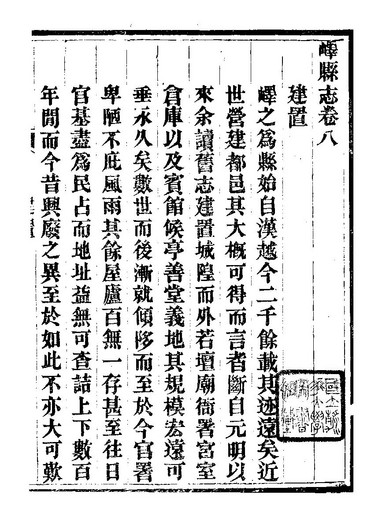 嶧縣志卷八
建置
嶧之為縣始自漢越今二千餘載其迹遠矣近
世營建都邑其大概可得而言者斷自元明以
來余讀舊志建置城隍而外若壇廟衙署宮室
倉庫以及賓館候亭善堂義地其規模宏遠可
垂永久矣數世而後漸就傾陊而至於今官署
卑陋不庇風雨其餘屋廬百無一存甚至往日
官基盡為民占而地址益無可查詰上下數百
年閒而今昔興廢之異至於如此不亦大可歎